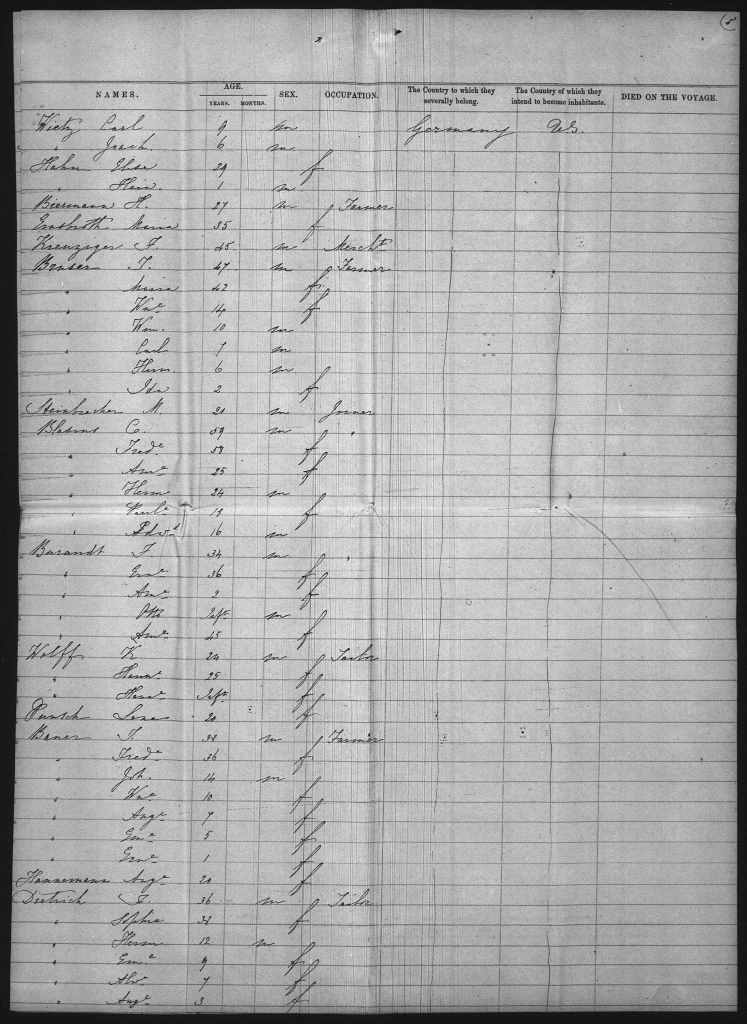 5
NAMES. AGE. SEX. OCCUPATION. The Country to which they severally belong. The Country of which they intend to become inhabitants. DIED ON THE VOYAGE.
YEARS. MONTHS.
Wietz Carl 9 m Germany US.
" Joach. 6 m
Hahn Elise 29 f
" Hein. 1 m
Biermann H. 27 m Farmer
Maria 35 f
Kreuziger F. 45 m Mercht
Bruser T. 47 m Farmer
" Maria 42 f
" Wae 14 f
" Wm. 10 m
" Carl 7 m
" Herm 6 m
" Ida 2 f
Steinbrecher M. 21 m Joiner
Blasius C. 59 m "
" Frede 58 f
" Ame 25 f
" Herm 24 m
" Paule 19 f
" Edwd 16 m
Barandt F 34 m "
" Erne 36 f
" Ame 2 f
" Otto Inft m
" Ame 45 f
Wolff Fr 24 m Tailor
" Hanne 25 f
" Inft f
Lena 20 f
Bauer F. 38 m Farmer
" Frede 36 f
" Joh. 14 m
" Wae 10 f
" Auge 7 f
" Eme 5 f
" Erne 1 f
Hannemann Auge 20 f
Dietrich F. 36 m Tailor
" Sophie 38 f
" Herm 12 m
" Eme 9 f
" Alw. 7 f
" Auge 3 f